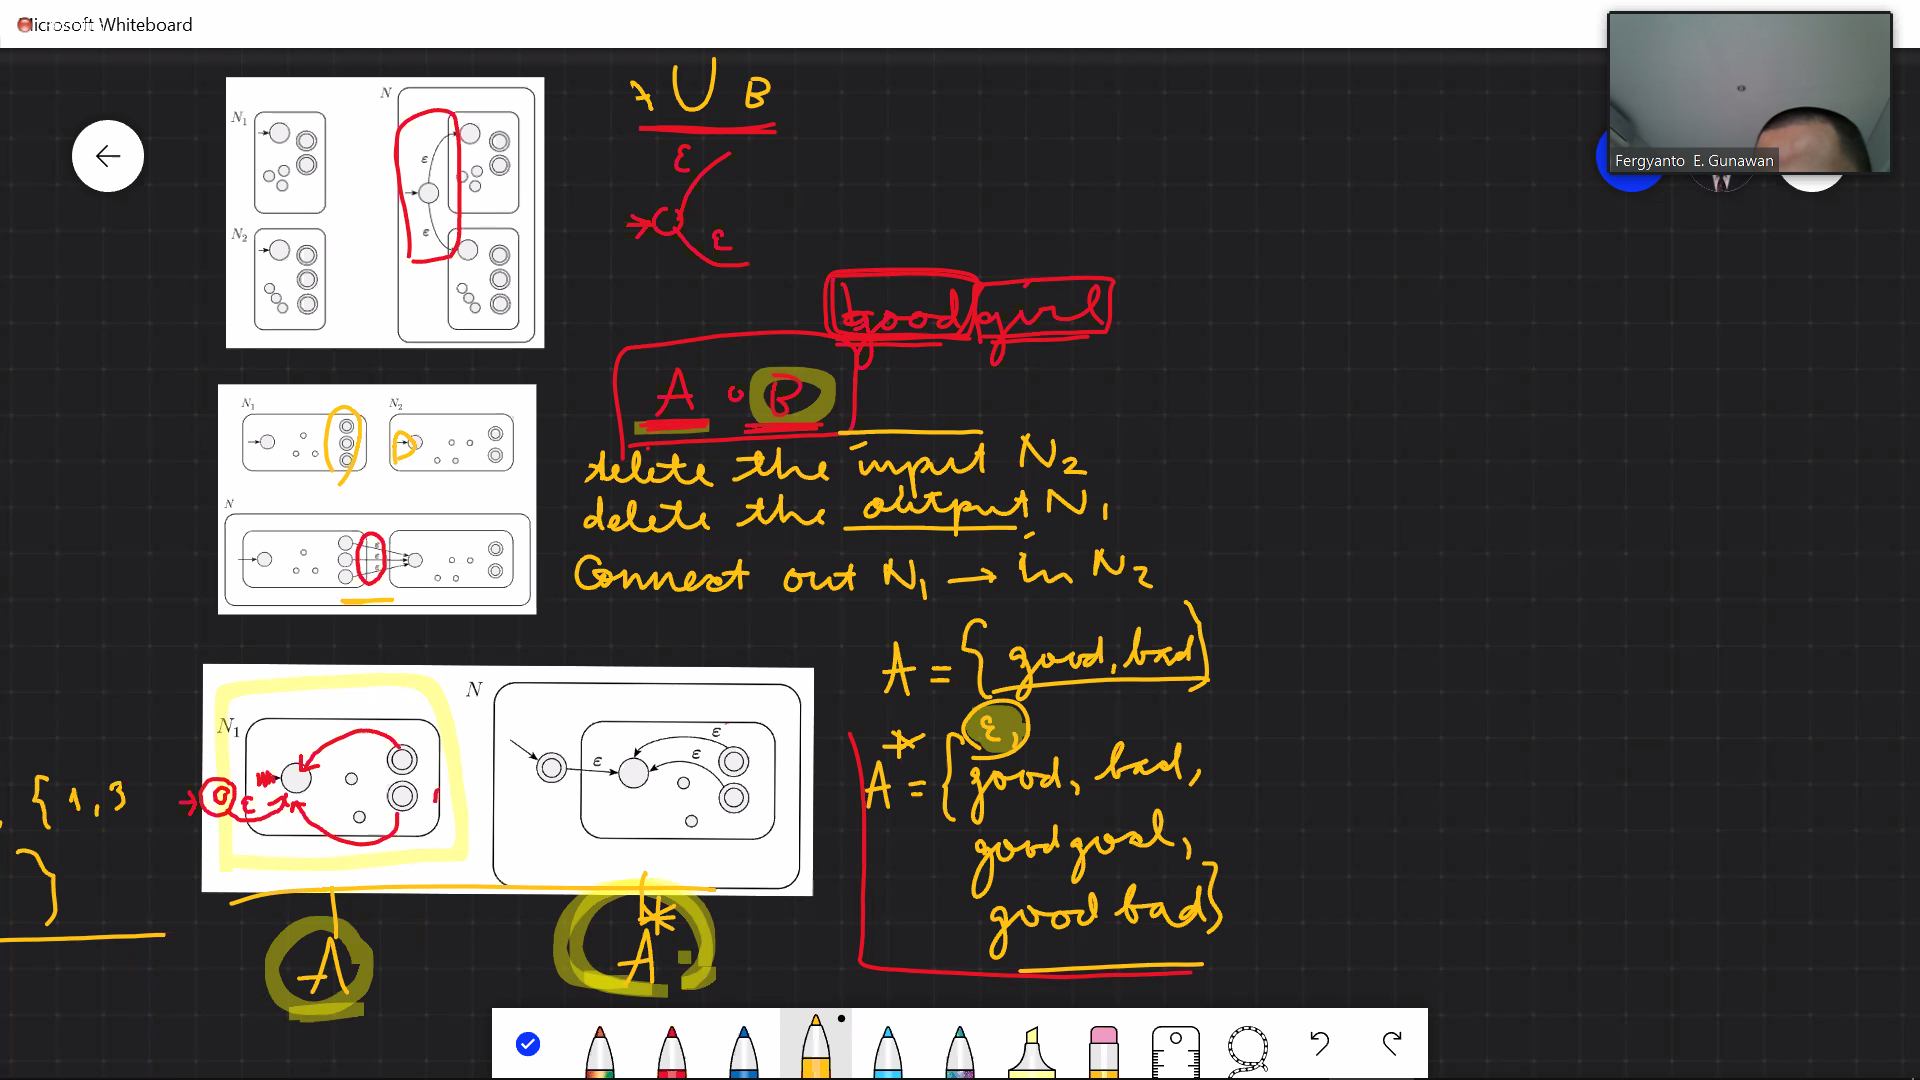 Microsoft Whiteboard
Fergyanto E. Gunawan
N
N1
ε
ε
N2
A ∪ B
ε
ε
good girl
A ∘ B
N1
N2
N
ε
ε
ε
delete the input N2
delete the output N1
Connect out N1 → in N2
A = {good, bad}
A* = {ε,
good, bad,
goodgood,
good bad}
N
N1
ε
ε
ε
ε
{1,3
}
A
A*